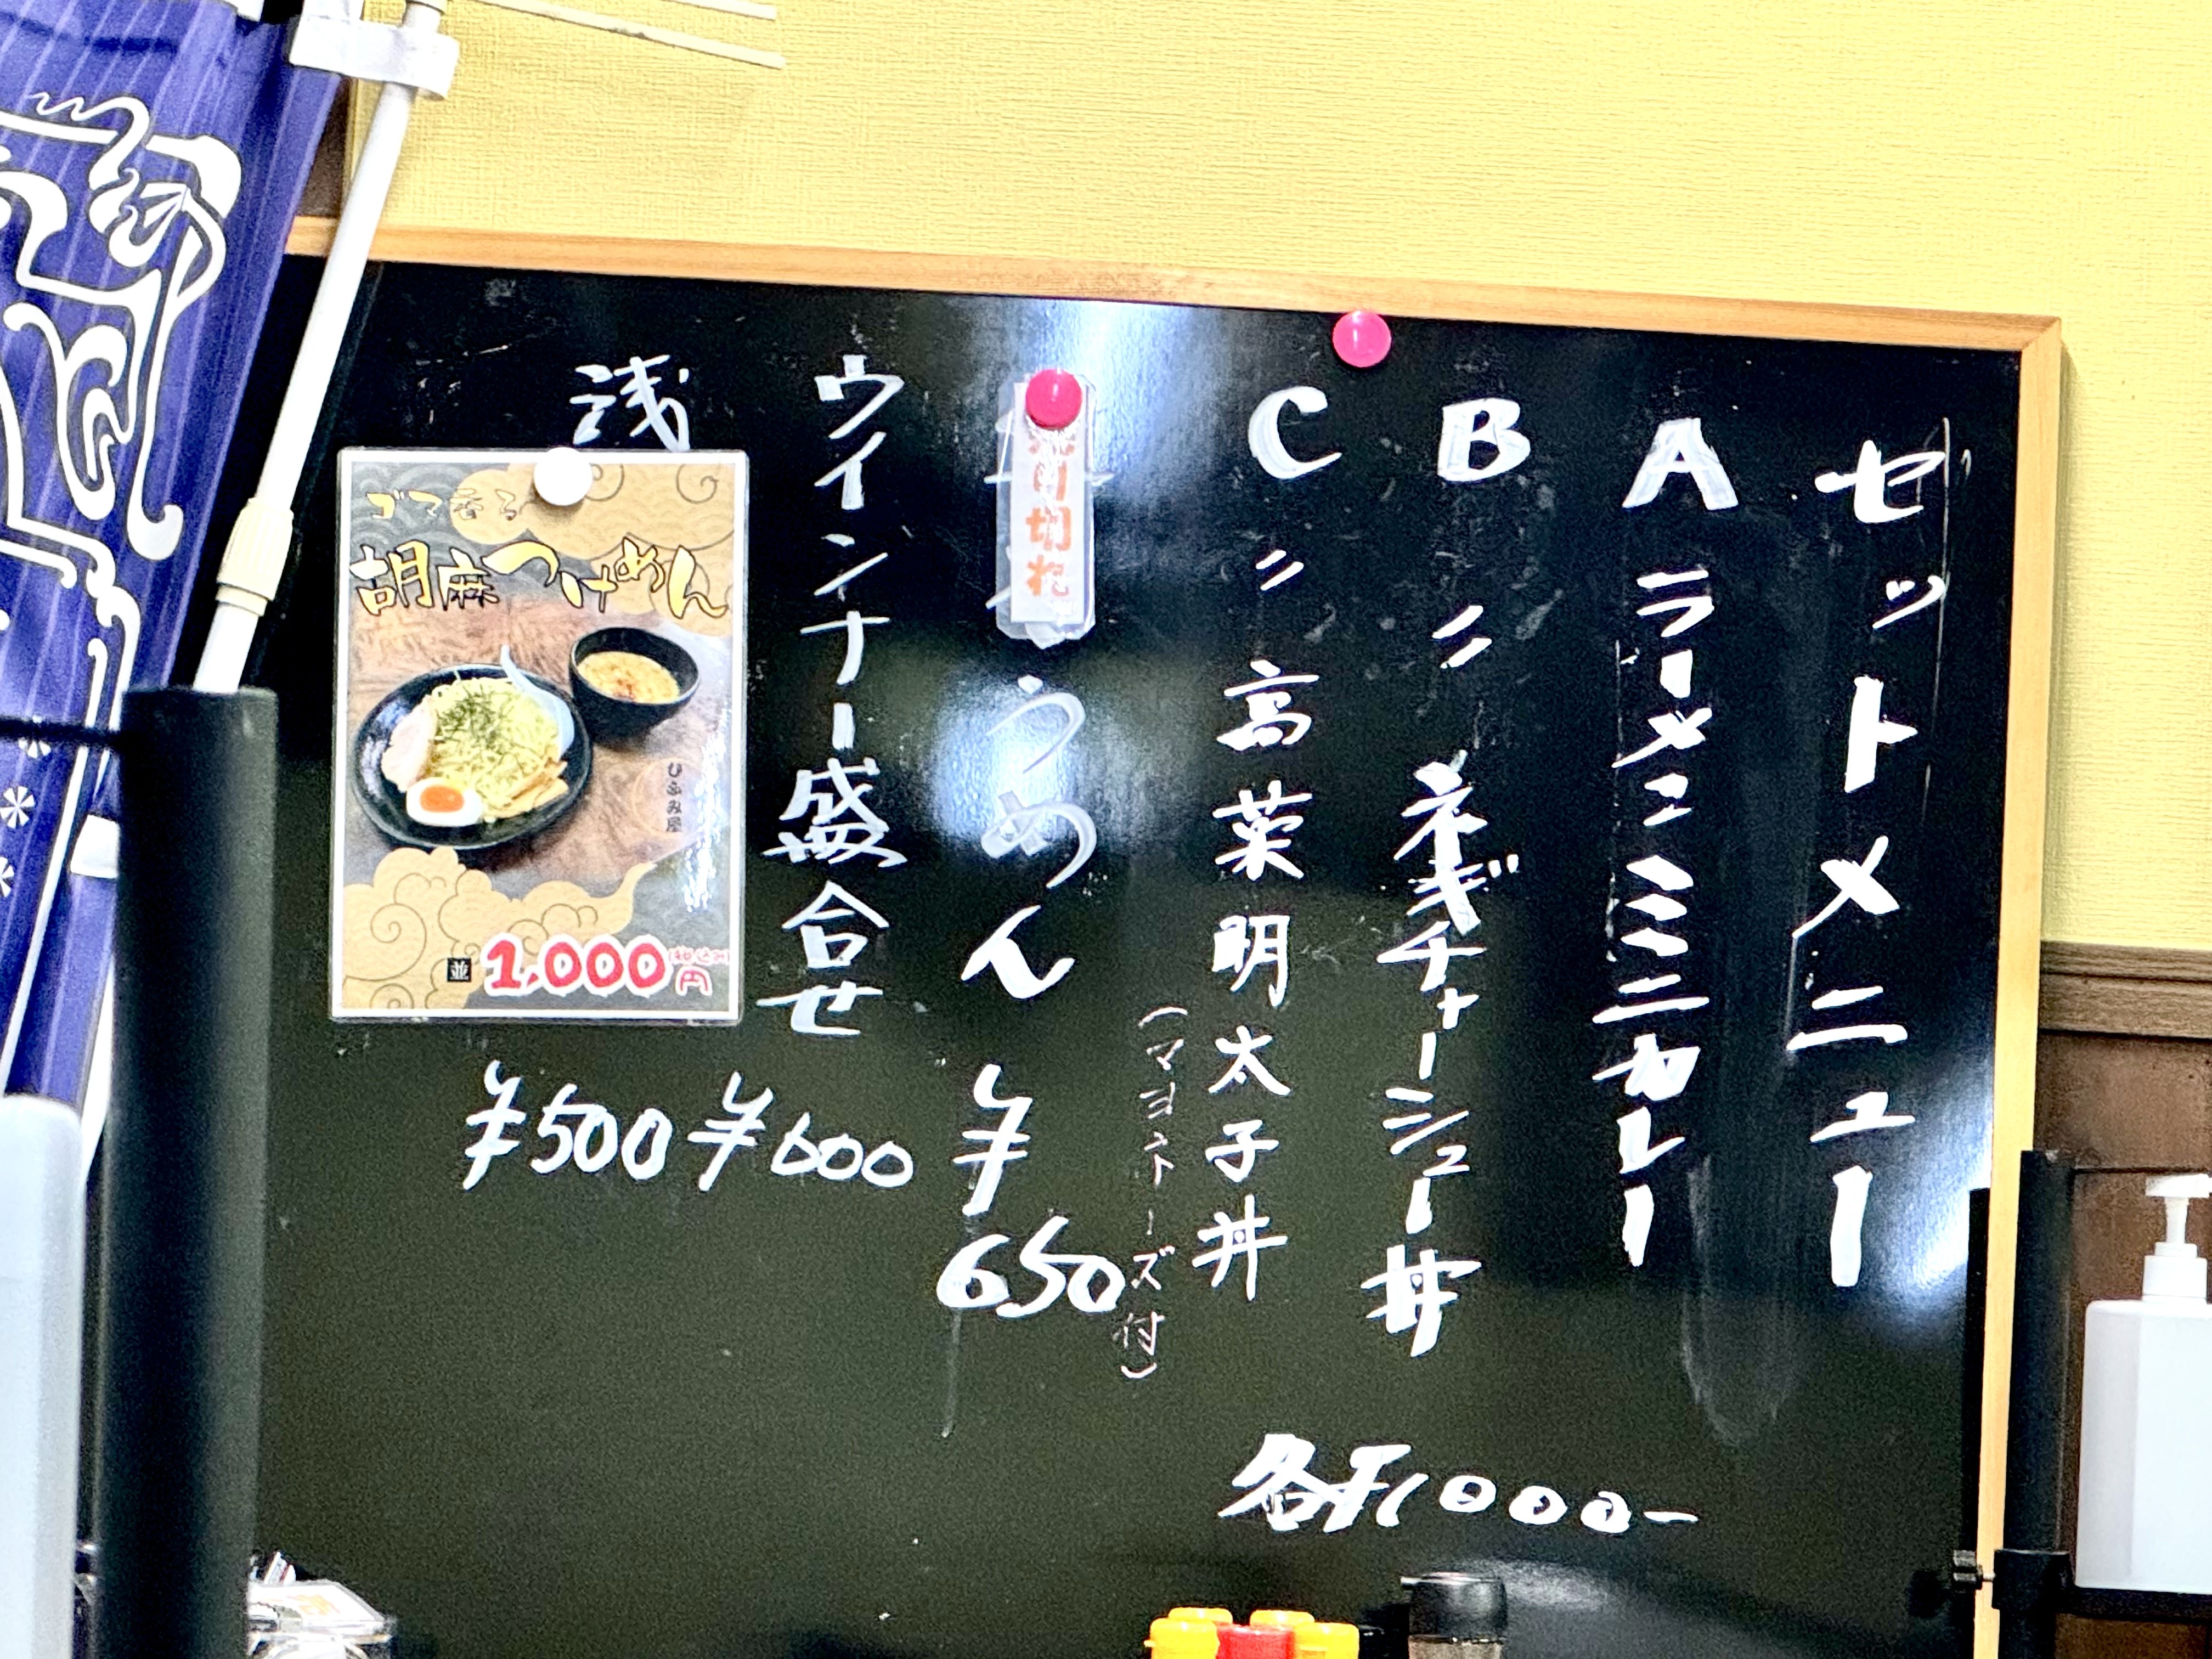 セットメニュー
A ラーメン ミニカレー
B 〃 ネギチャーシュー丼
C 〃 高菜明太子丼
(マヨネーズ付)
各¥1000ー
売り切れ
うめん ¥650
ウインナー盛合せ ¥600
浅
¥500
ゴマ香る
胡麻つけめん
ひふみ屋
並 1,000円(税込み)